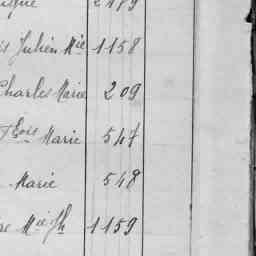 2189
Julien Mie 1158
Charles Marie 209
Fçois Marie 547
Marie 548
Mie Jh 1159